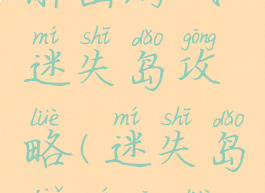 mí shī dǎo gōng
迷失岛攻
lüè mí shī dǎo
略(迷失岛